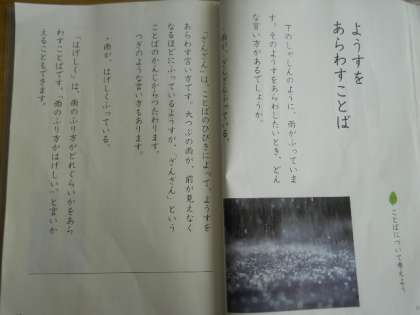 ことばについて考えよう
ようすを
あらわすことば
下のしゃしんのように、雨がふっていま
す。そのようすをあらわしたいとき、どん
な言い方があるでしょうか。
・雨が、ざんざんふっている。
「ざんざん」は、ことばのひびきによって、ようすを
あらわす言い方です。大つぶの雨が、前が見えなく
なるほどにふっているようすが、「ざんざん」という
ことばのかんじからつたわります。
つぎのような言い方もあります。
・雨が、はげしくふっている。
「はげしく」は、雨のふり方がどれぐらいかをあら
わすことばです。「雨のふり方がはげしい。」と言いか
えることもできます。